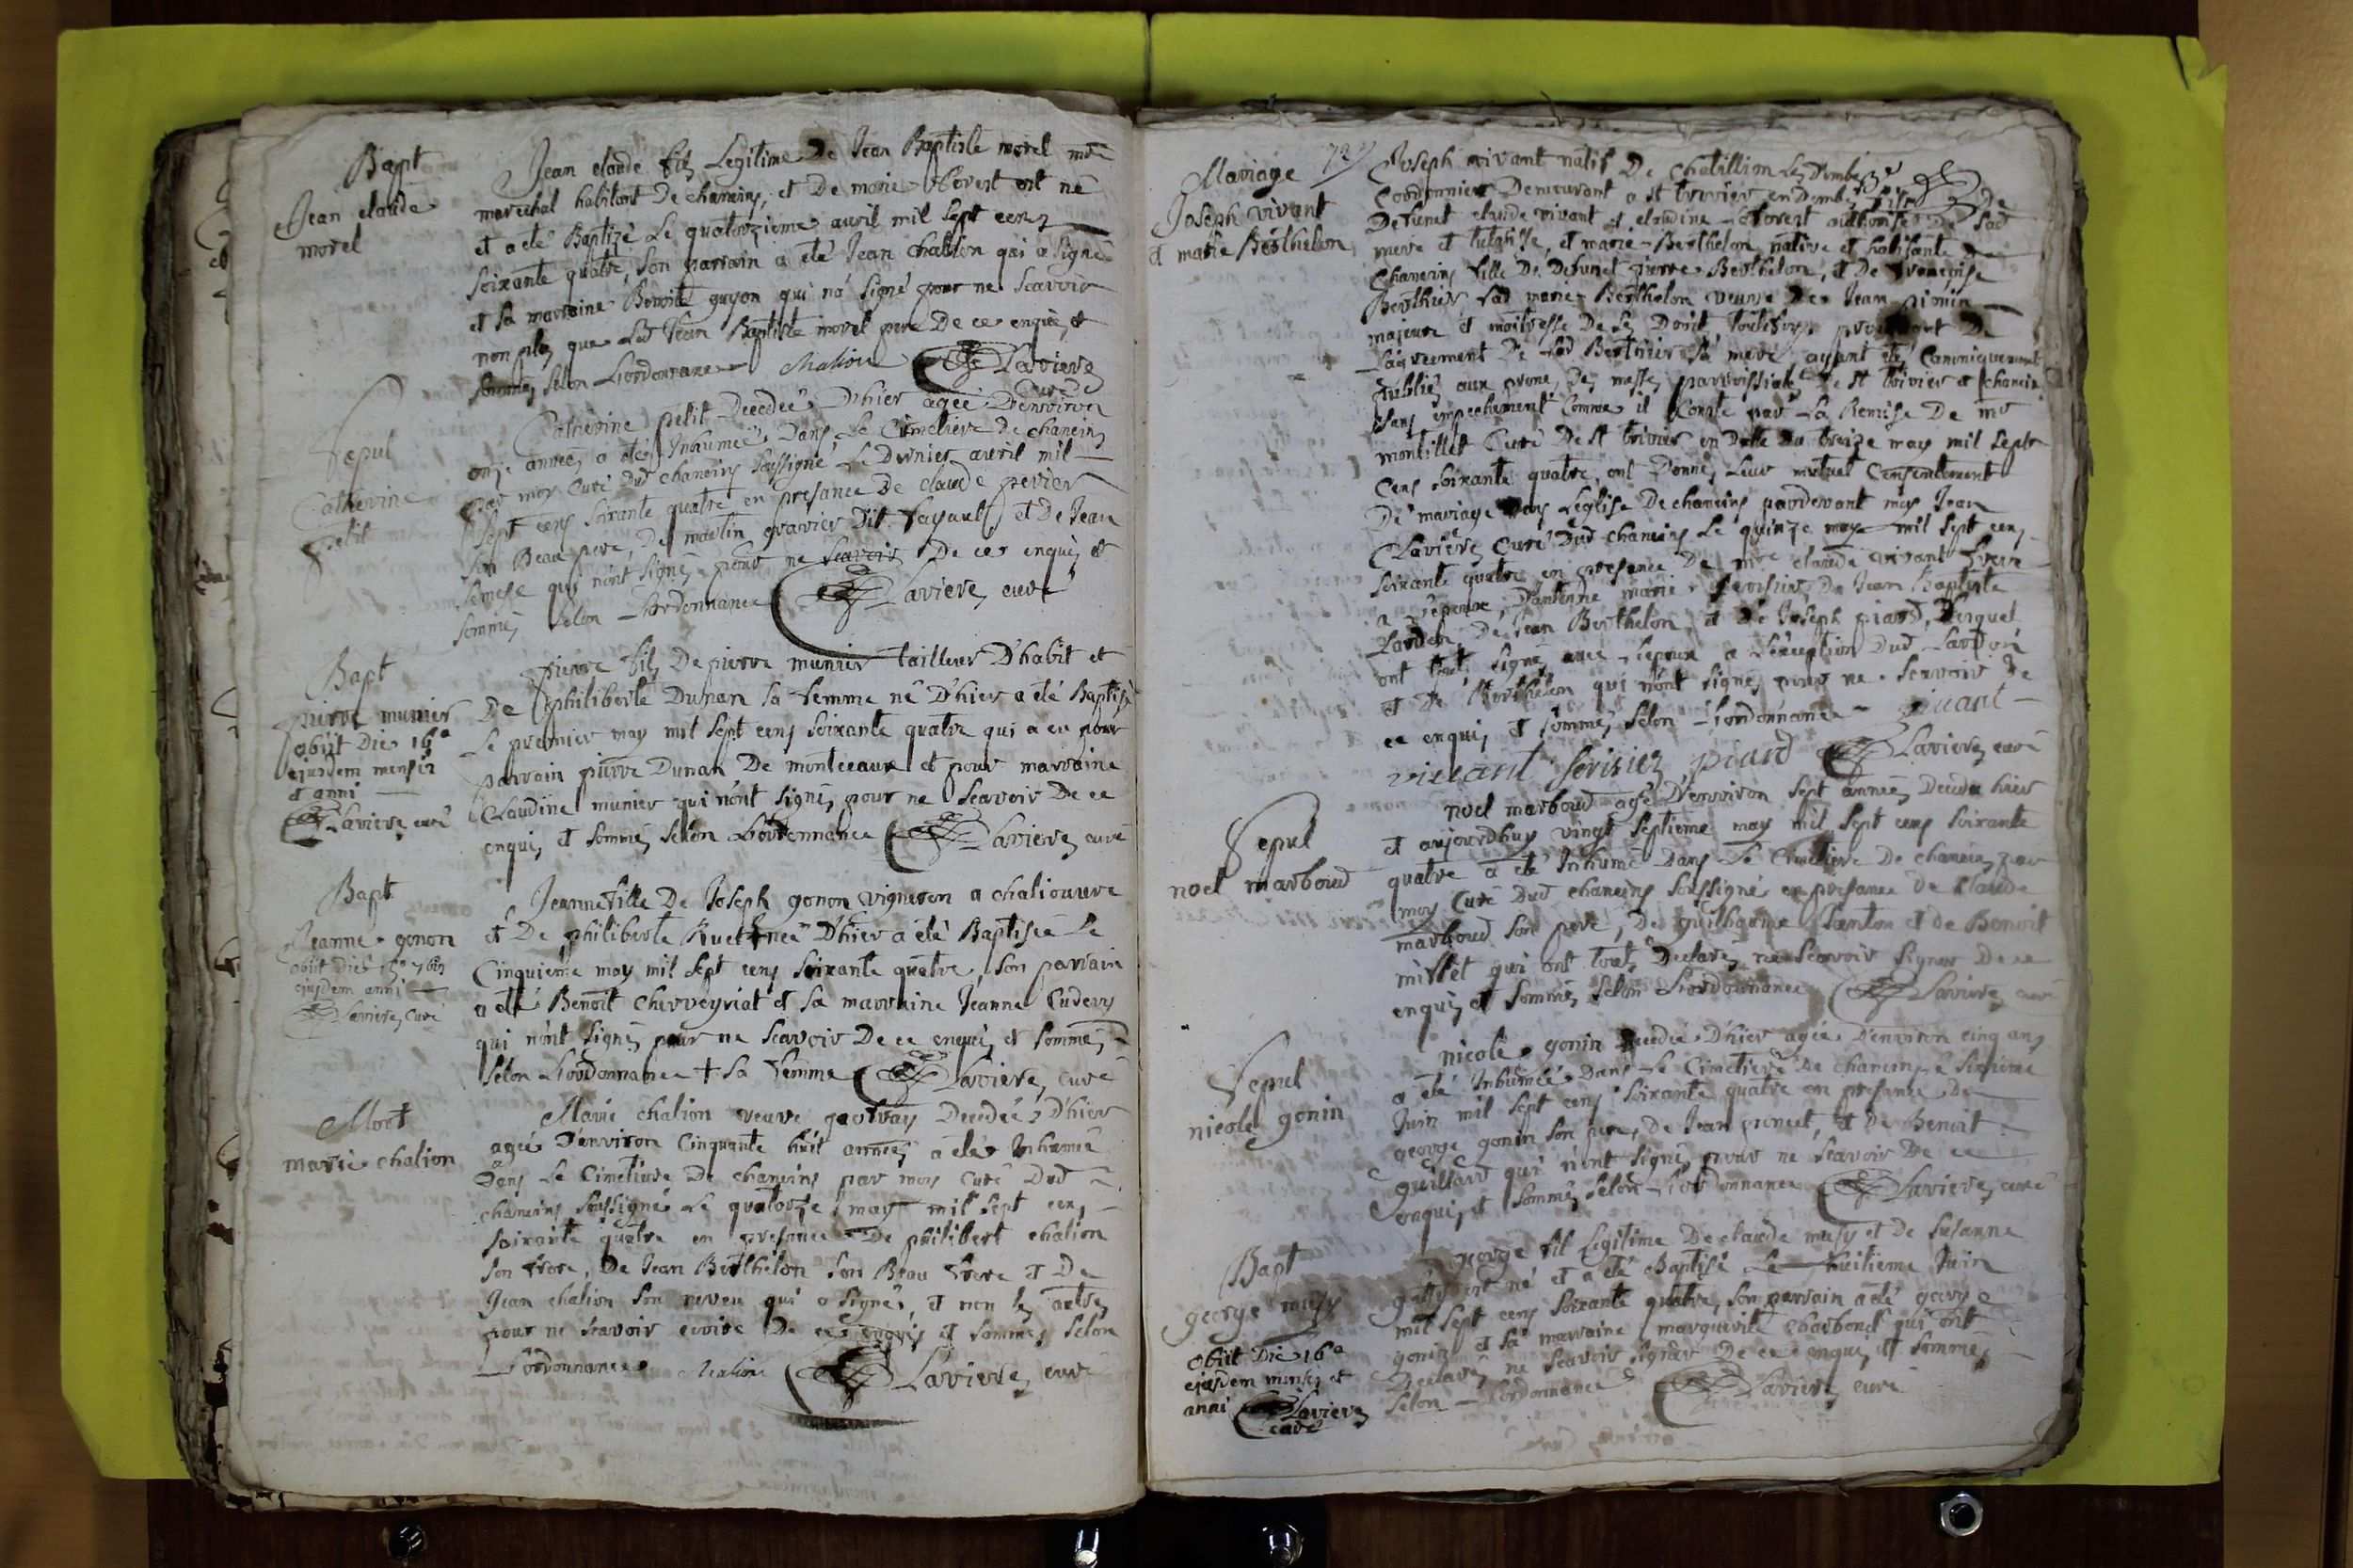 Bapt
Jean claude
morel
Jean claude fils Legitime De Jean Baptiste morel mtre
marechal habitant De chaneins, et De marie est né
et a eté Baptizé Le quatorzieme avril mil sept cens
soixante quatre, son parrain a eté Jean chalion qui a signé
et sa marraine Benoite guyon qui n'a signé pour ne scavoir
non plus que Led Jean Baptiste morel pere De ce enquis et
sommés selon Lordonnance chalion Laviere
curé
Sepul
Catherine
petit
Catherine petit Decedée D'hier agée D'environ
onze années a eté Inhumée Dans Le Cimetiere de chaneins
par moy Curé Dud chaneins soussigné Le Dernier avril mil
sept cens soixante quatre en presance De claude perier
son Beau pere, De martin gravier Dit et De Jean
qui n'ont signé pour ne scavoir De ce enquis et
sommés selon Lordonnance Laviere curé
Bapt
pierre munier
obiit Die 16a
ejusdem mensis
et anni
Laviere curé
pierre fils De pierre munier tailleur D'habit et
De philiberte Dunan sa femme né D'hier a eté Baptisé
Le premier may mil sept cens soixante quatre qui a eu pour
parrain pierre Dunan De montceaux et pour marraine
Claudine munier qui n'ont signé pour ne scavoir De ce
enquis et sommés selon Lordonnance Laviere curé
Bapt
Jeanne gonon
obiit Die 7bris
ejusdem anni
Laviere curé
Jeanne fille De Joseph gonon vigneron a chaliouvre
et De philiberte Ruet + née D'hier a eté Baptisée Le
Cinquieme may mil sept cens soixante quatre, son parrain
a eté Benoit Chervéyriat et sa marraine Jeanne
qui n'ont signé pour ne scavoir De ce enquis et sommés
selon Lordonnance + sa femme Laviere curé
Mort
marie chalion
Marie chalion veuve geoffray Decedée D'hier
agée D'environ Cinquante huit années a eté Inhumée
Dans Le Cimetiere De chaneins par moy Curé Dud
chaneins soussigné Le quatorze may mil sept cens
soixante quatre en presance De philibert chalion
son frere, De Jean Berthelon son Beau frere et De
Jean chalion son neveu qui a signé, et non les autres
pour ne scavoir ecrire De ce enquis et sommés selon
Lordonnance chalion Laviere curé
Mariage
Joseph vivant
et marie Berthelon
Joseph vivant natif De Chatillion Les Dombes
Cordonnier Demeurant a st trivier en Dombes fils De
Defunct claude vivant et claudine authorisé De sad
mere et tutrisse, et marie Berthelon native et habitante De
Chaneins fille De Defunct pierre Berthelon, et De Françoise
Berthier lad marie Berthelon veuve De Jean
majeure et maitresse De ses Droit, toutefoys De
L'agreement De lad Berthier sa mere, ayant eté Canoniquement
publiés aux prone Des messes parroissiales De st trivier et chaneins
sans empechement comme il Conste par La Remise De mr
montillet Curé De st trivier en Datte Du treize may mil sept
cens soixante quatre, ont Donné Leur mutuel Consentement
De mariage Dans Leglise De chaneins pardevant moy Jean
Laviere Curé Dud chaneins Le quinze may mil sept cens
soixante quatre en presance De mre claude vivant frere
a L'epoux, D'antoine marie De Jean Baptiste
Lardon, De Jean Berthelon, et De Joseph piard, Lesquels
ont tous signé avec L'epoux a L'exeception Dud Lardon
et De Berthelon qui n'ont signé pour ne scavoir De
ce enquis et sommés selon Lordonnance vivant
vivant serisier piard Laviere curé
Sepul
noel marboud
noel marboud agé D'environ sept années Decedé hier
et aujourdhuy vingt septieme may mil sept cens soixante
quatre a eté Inhumé Dans Le Cimetiere De chaneins par
moy Curé Dud chaneins soussigné en presance De Claude
marboud son pere, De guilhaume santon et De Benoit
millet qui ont tous Declaré ne scavoir signer De ce
enquis et sommés selon Lordonnance Laviere curé
Sepul
nicole gonin
nicole gonin Decedée D'hier agée D'environ cinq ans
a eté Inhumée Dans Le Cimetiere De chaneins Le sixieme
Juin mil sept cens soixante quatre en presance De
george gonin son pere, De Jean poncet, et De Benoit
guillard qui n'ont signé pour ne scavoir De ce
enquis et sommés selon Lordonnance Laviere curé
Bapt
george musy
obiit Die 16a
ejusdem mensis et
anni Laviere
curé
george fil Legitime De claude musy et De Susanne
est né et a eté Baptisé Le huitieme Juin
mil sept cens soixante quatre, son parrain a eté george
gonin et sa marraine marguerite charbonel qui ont
Declaré ne scavoir signer De ce enquis et sommés
selon Lordonnance Laviere curé